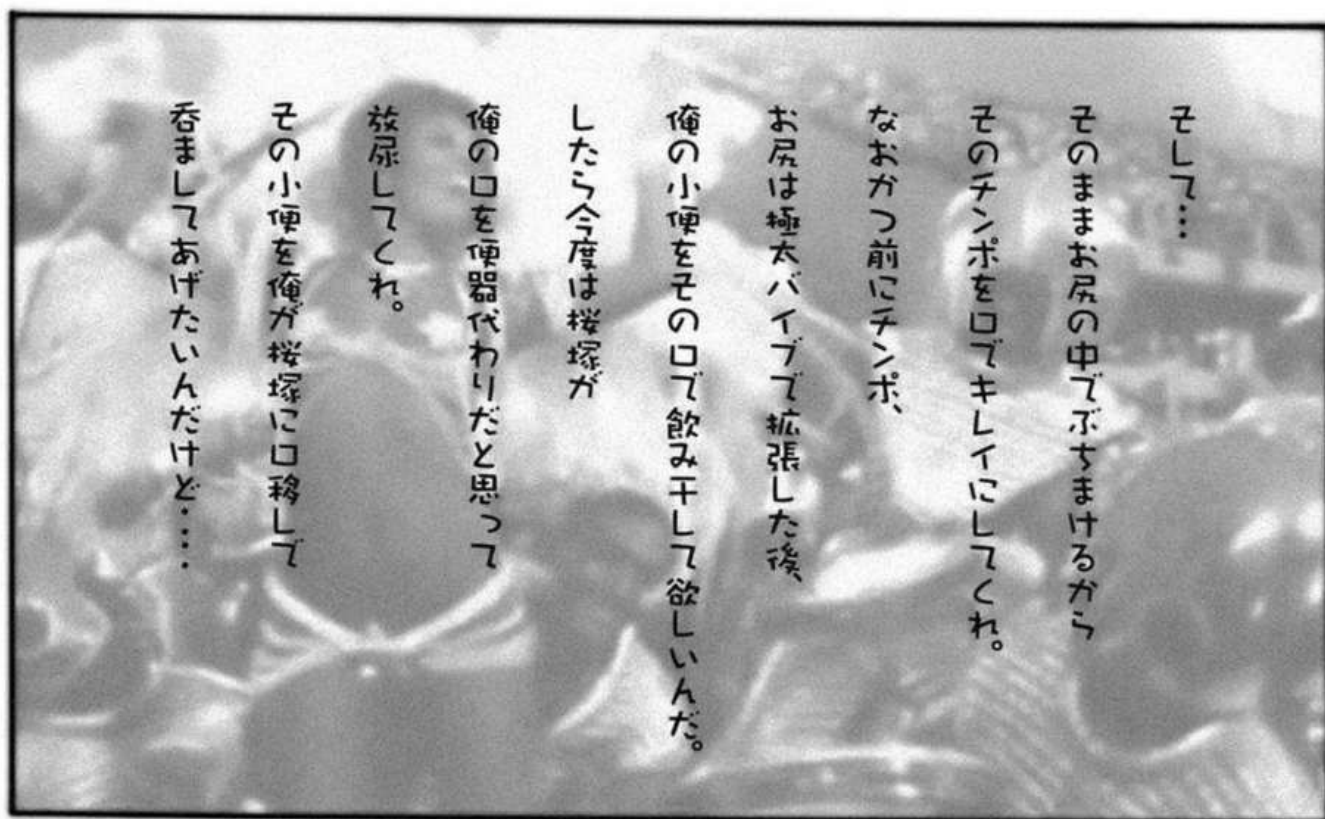 そして…
そのままお尻の中でぶちまけるから
そのチンポを口でキレイにしてくれ。
なおかつ前にチンポ、
お尻は極太バイブで拡張した後、
俺の小便をその口で飲み干して欲しいんだ。
したら今度は桜塚が
俺の口を便器代わりだと思って
放尿してくれ。
その小便を俺が桜塚に口移しで
呑ましてあげたいんだけど・・・・